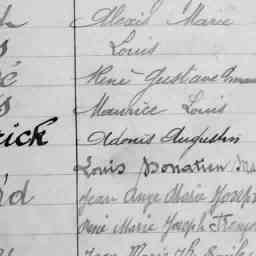 Alexis Marie
Louis
René Gustave
Maurice Louis
rick Adonis Augustin
Louis Donatien Ma
rd Jean Ange Marie Joseph
René Marie Joseph François
Jean Marie